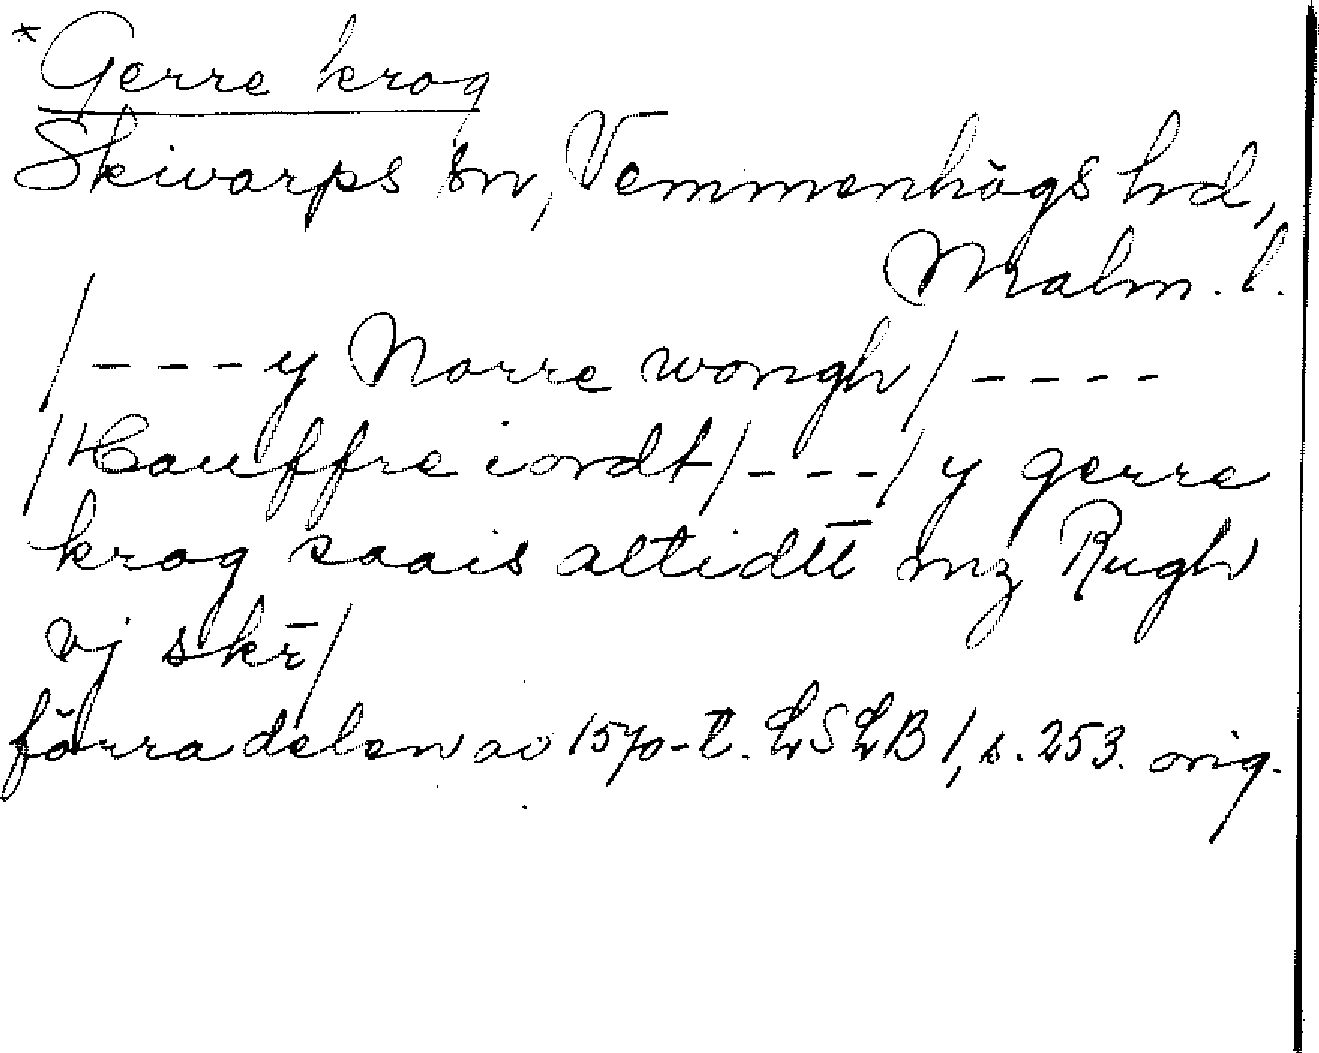 *Gerre krog
Skivarps sn, Vemmenhögs hd,
Malm. l.
/---- y Norre wongh/ ----
/Hauffre iordt/---/ y gerre
krog saais altidtt̄ mz Rugh
vj skr̄/
förra delen av 1570-t. LSLB 1, s. 253. orig.